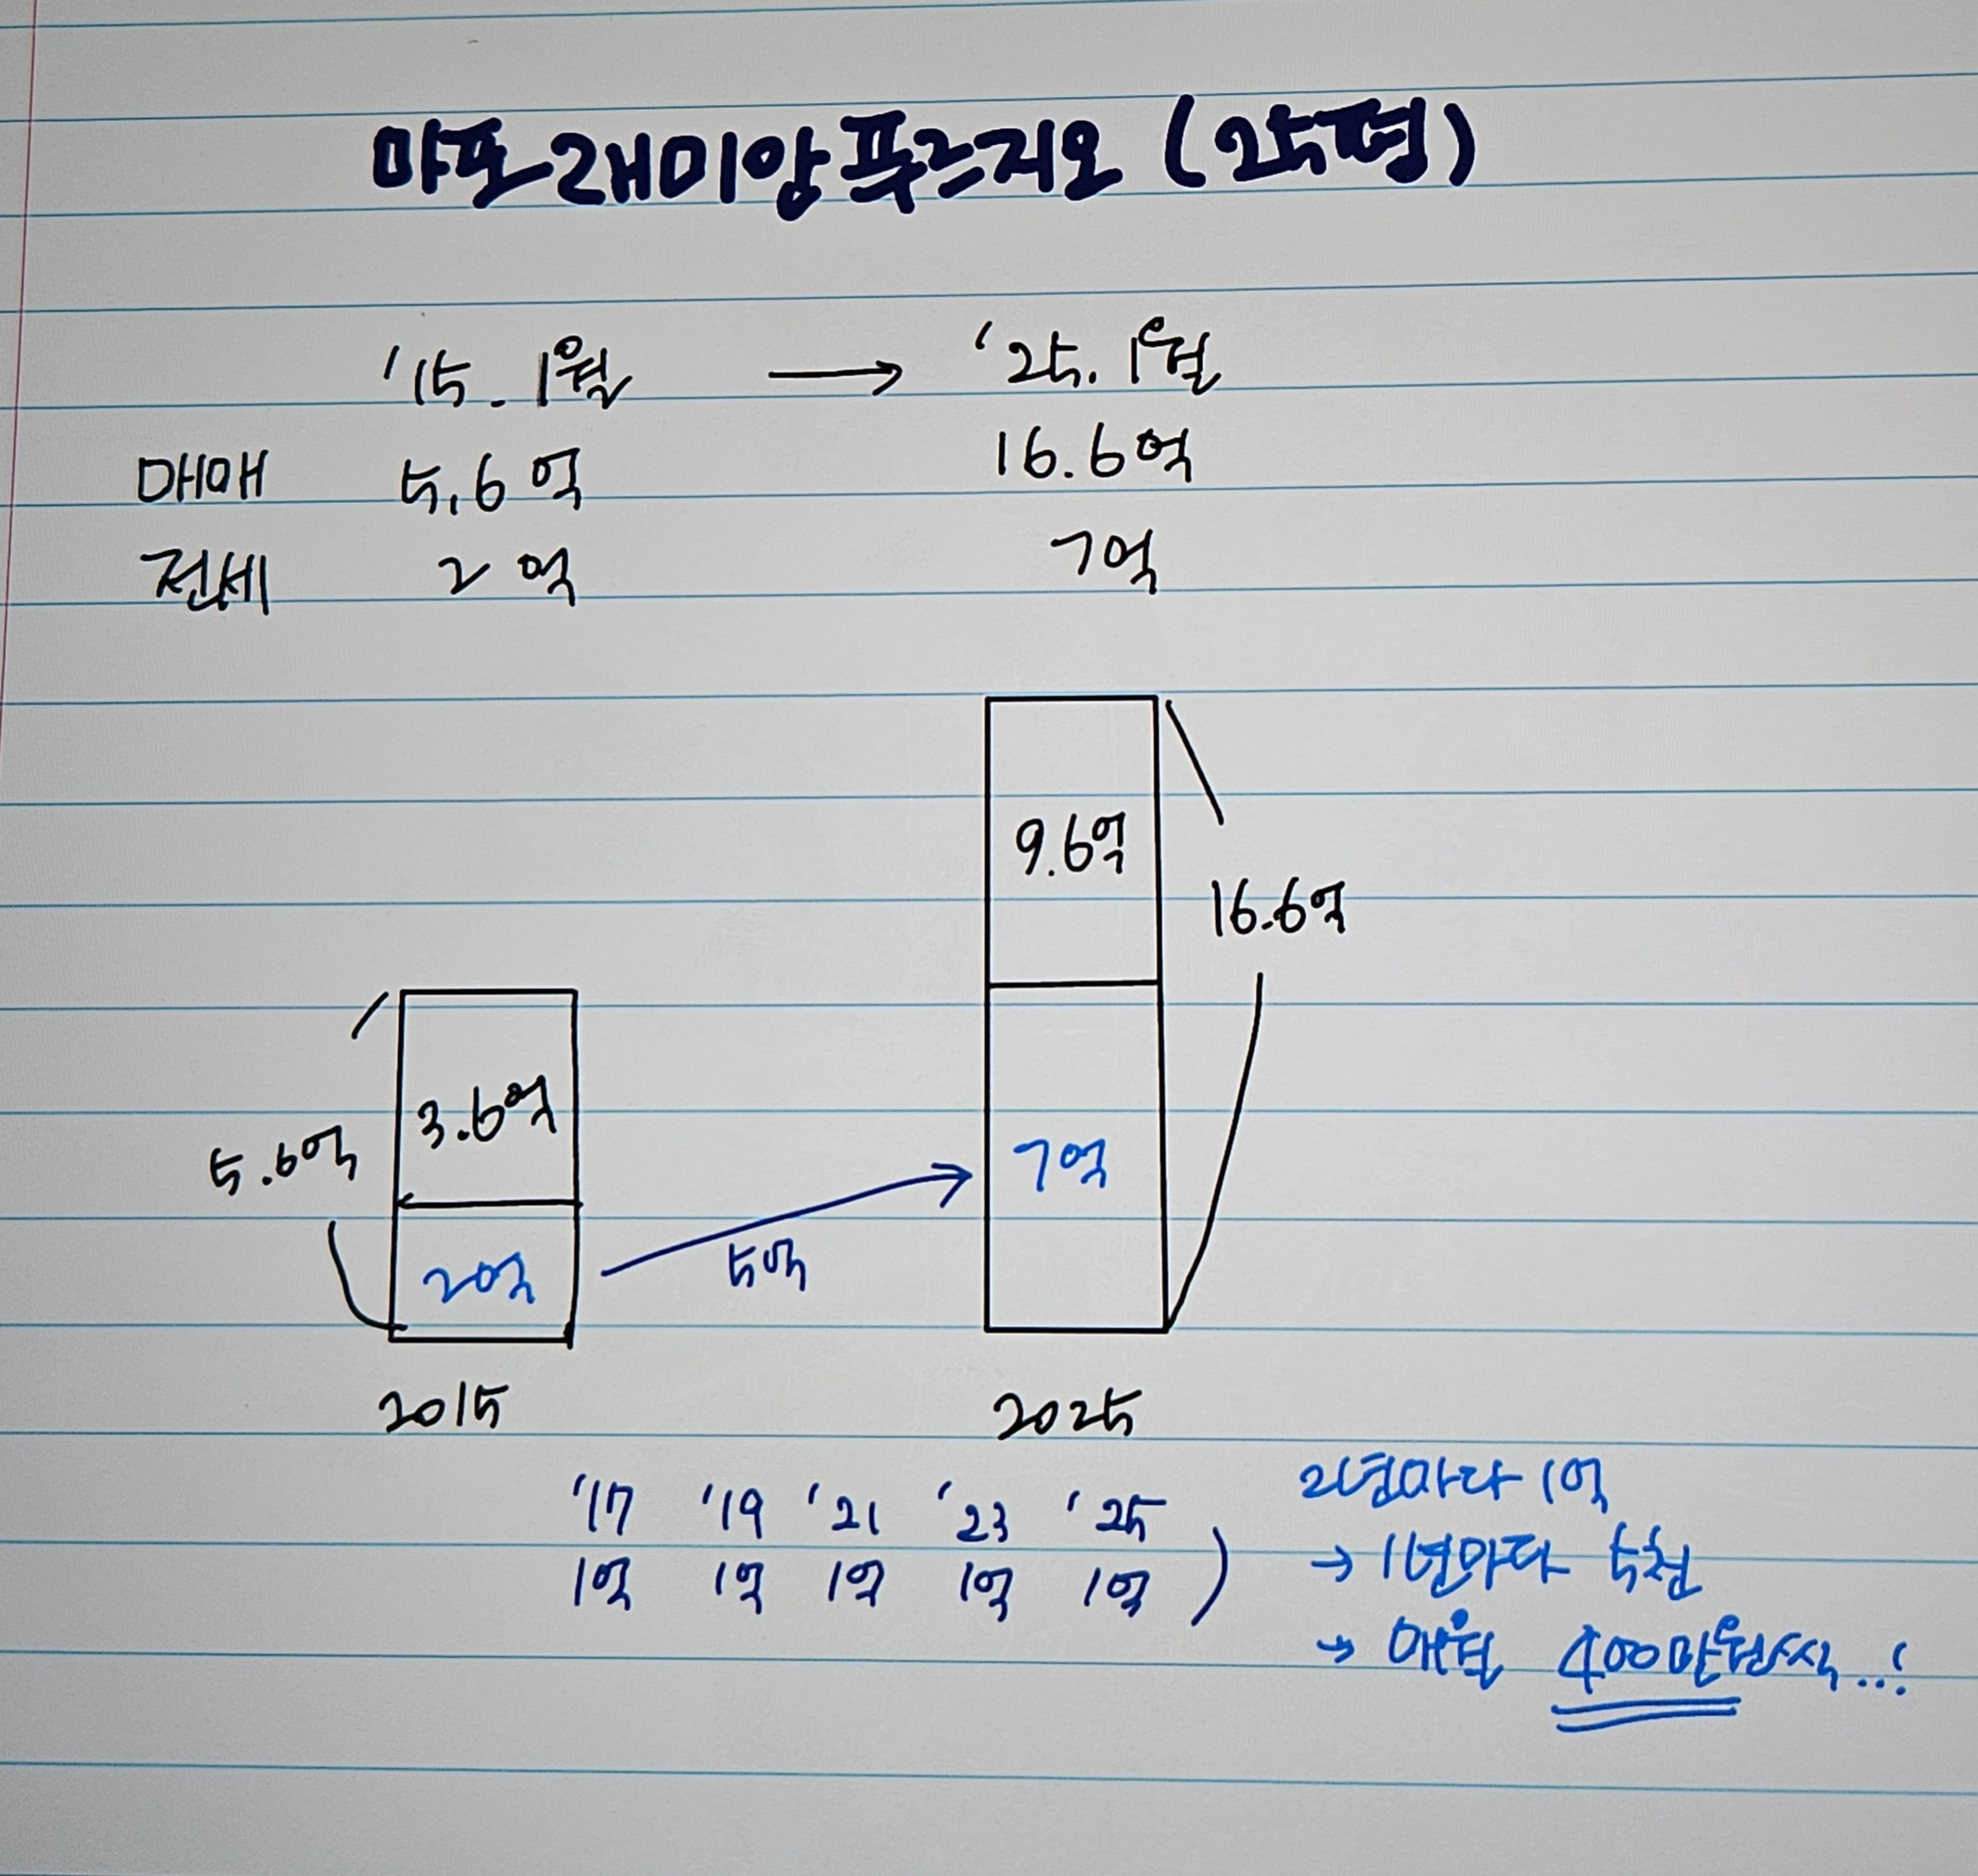 마포래미안푸르지오 (25평)
'15. 1월 → '25. 1월
매매 5.6억 16.6억
전세 2억 7억
9.6억
16.6억
3.6억
5.6억
7억
2억
5억
2015 2025
'17 '19 '21 '23 '25
1억 1억 1억 1억 1억 )
2년마다 1억
→ 1년마다 5천
→ 매월 400만원씩...!